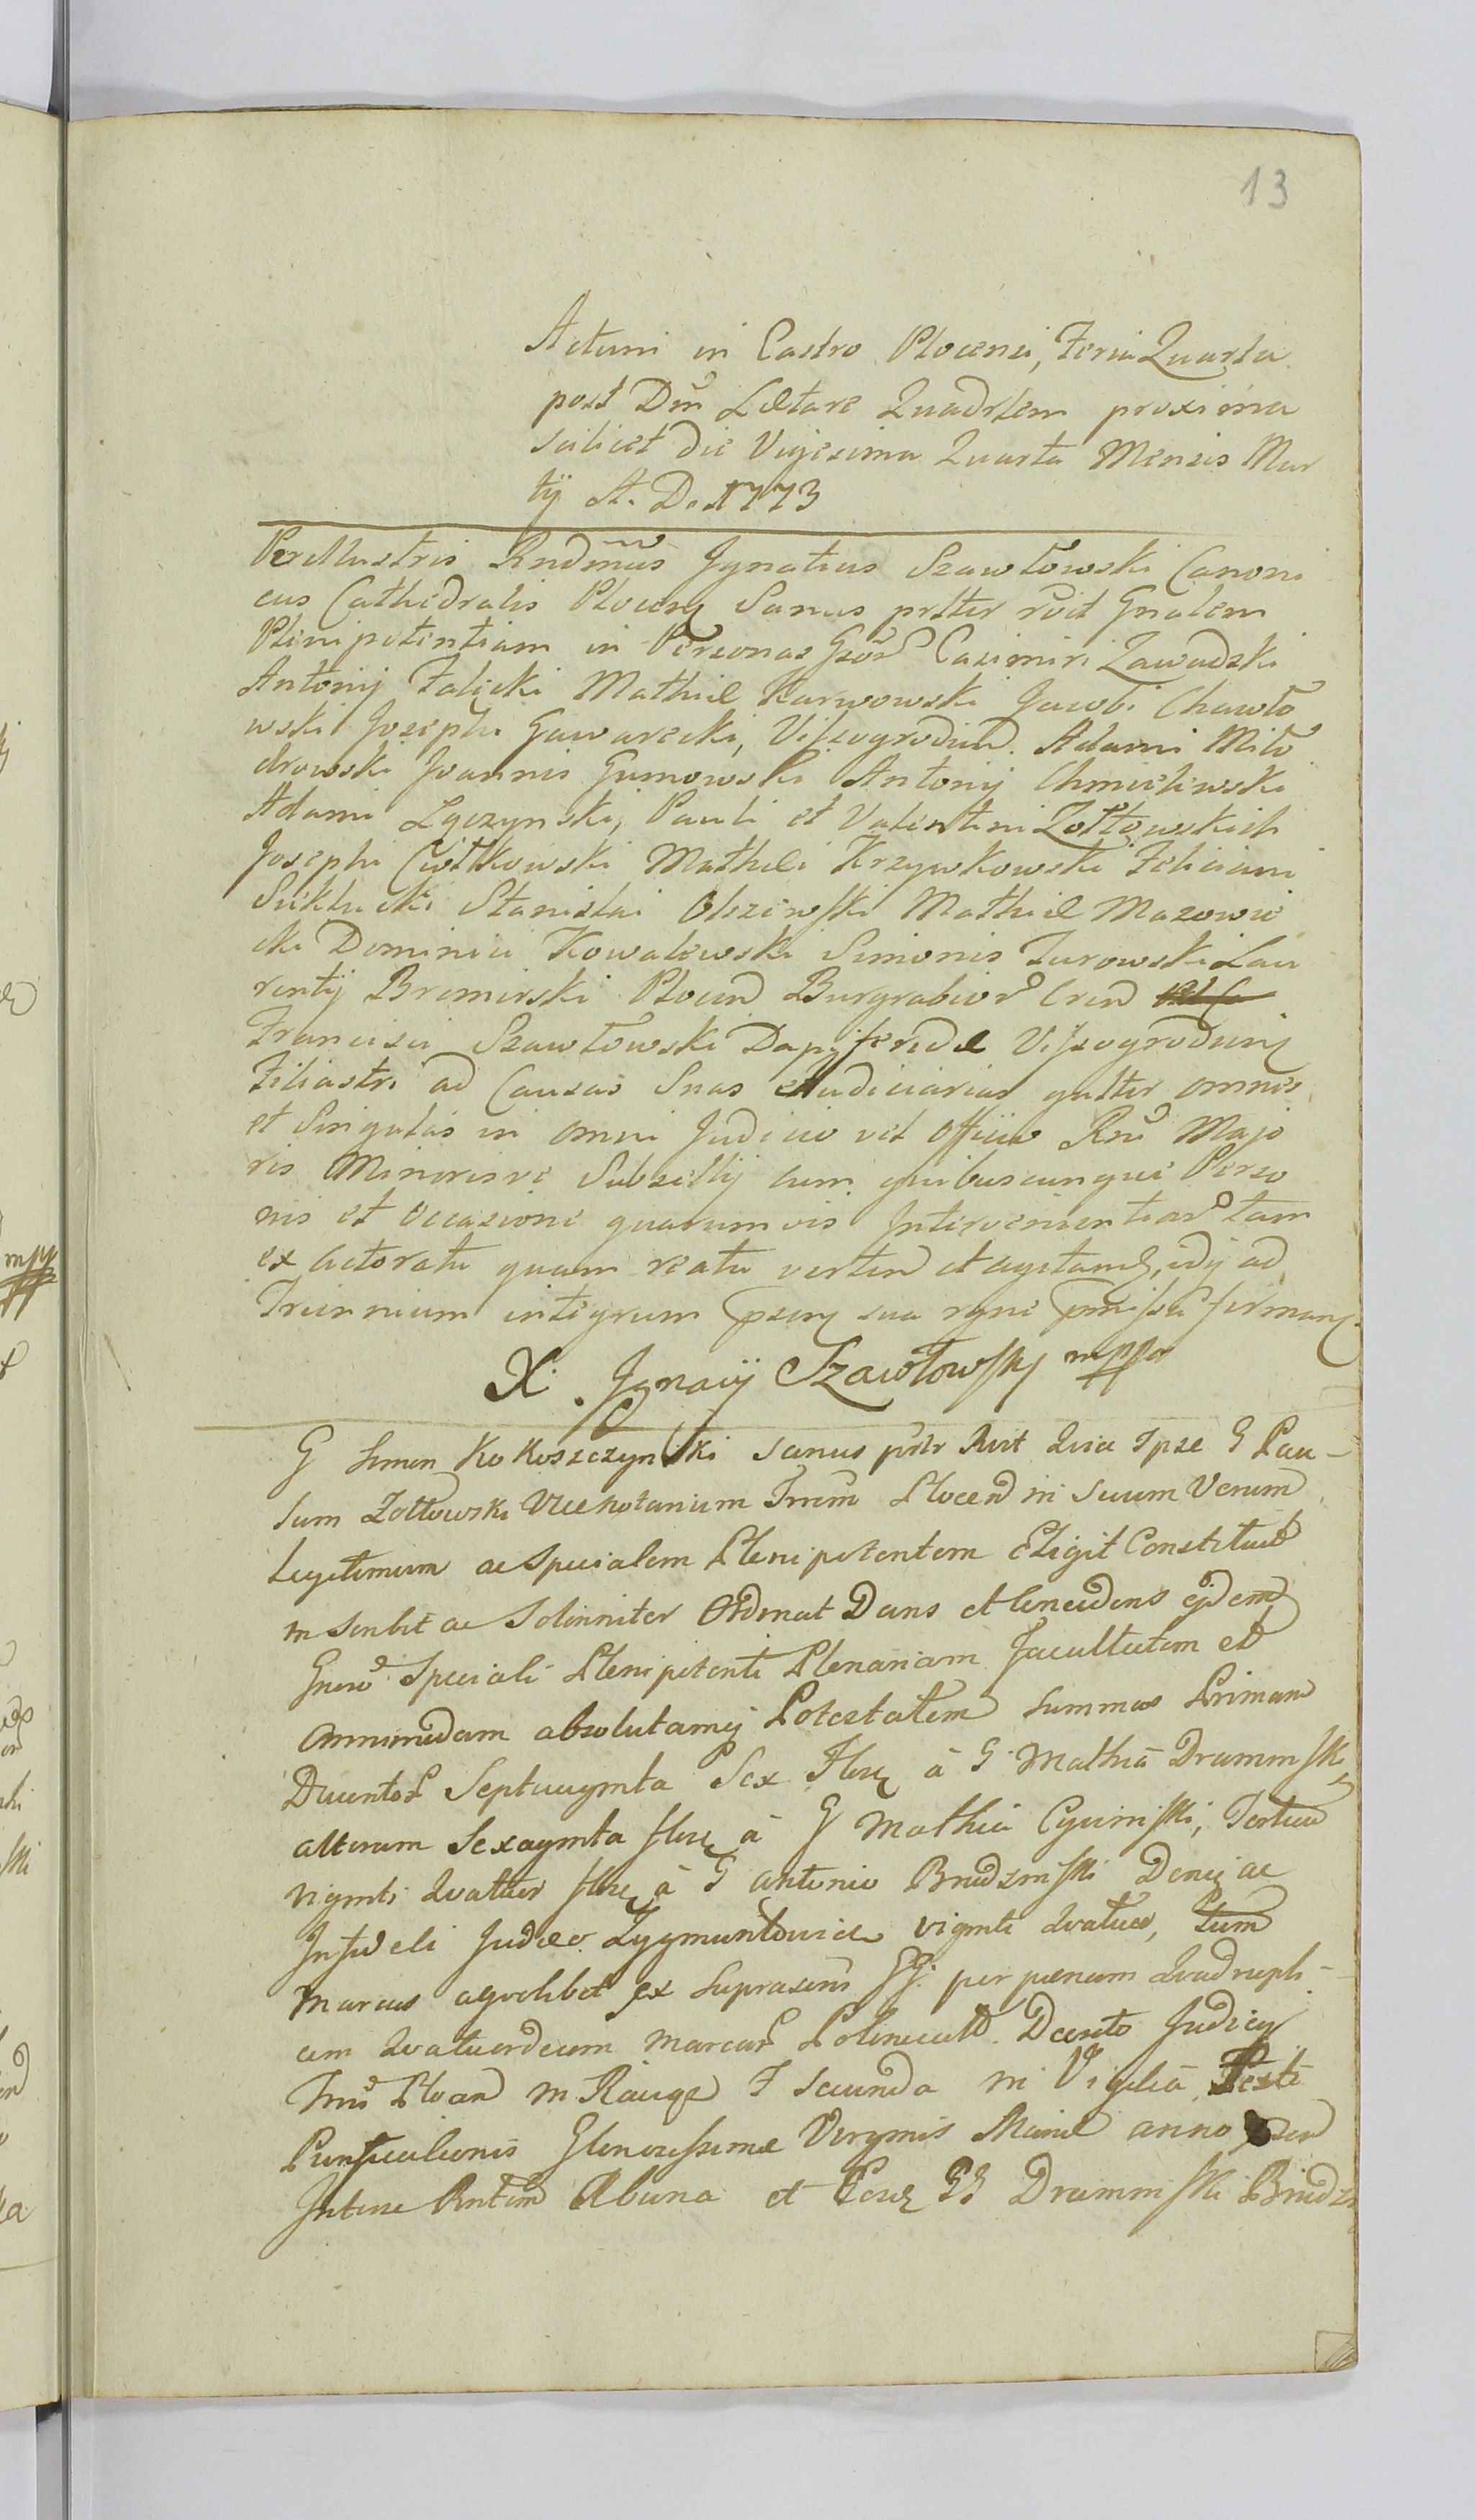 13
Actum in Castro Plocensi, Feria Quarta
post Dm̃ Lætare Quadrlem proxima
scilicet die Vigesima Quarta Mensis Mar
tij A. D. 1773
Perillustris Rndmus Ignatius Szawłowski Canoni
cus Cathedralis Plocen Sanus prtter rvit Gnalem
Plenipotentiam in Personas Gsor Casimiri Zawadzki
Antonij Falęcki Mathiæ Karwowski Jacobi Chawło
wski Josephi Gawarecki, Visogrodien. Adami Miło
drowski Joannis Gumowski Antonij Chmielewski
Adami Lyczynski, Pauli et Valentini Zołtowskich
Josephi Ciołkowski Mathei Krzywkowski Feliciani
Suklucki Stanislai Olszewski Mathiæ Mazowie
cki Dominici Kowalewski Simonis Turowski Lau
rentij Bromirski Plocen Burgrabior Cren
Francisci Szawłowski Dapiferidæ Visogroduen
Filiastri ad Causas Suas Judiciarias galter omnes
et Singulas in omni Judicio vel Officio Rni Majo
ris Minorisve Subsellij cum quibuscunque Perso
nis et occasione quarumvis Intervenientiar tam
ex Actoratu quam reatu verten et agitand, idq ad
Triennium integrum psen sua rgne pmissa firman
X. Jgnacij Szawłowsky mppr
G Simon Kokoszczynski sanus prtr Rvit Quia Ipse G Pau-
lum Zołtowski Vicenotarium Trrem Plocen in suum Verum
Legitimum ac specialem Plenipotentem Eligit Constituit
inscribit ac Solenniter Ordinat Dans et Concedens ejdem
Gneroso Speciali Plenipotenti Plenariam Facultatem et
Omnimodam absolutamq Potestatem summas Primam
Ducentor Septuaginta Sex Flor à G Mathia Dramin ski
alteram Sexaginta flor à G Mathia Cyvinski, Tertiam
viginti Quatuor flor à G Antonio Brudzinski Deniq ac
Infideli Judæo Zygmuntowicz viginti Quatuor, tum
marcas a quolibet ex suprascris GG. per pænam Quadrupli-
cem Quatuordecim marcar Polonical. Decreto Judicij
Trris Plocen in Raciąż F Secunda in Vigilia Festi
Purificationis Gloriosissimæ Virginis Mariæ anno psen